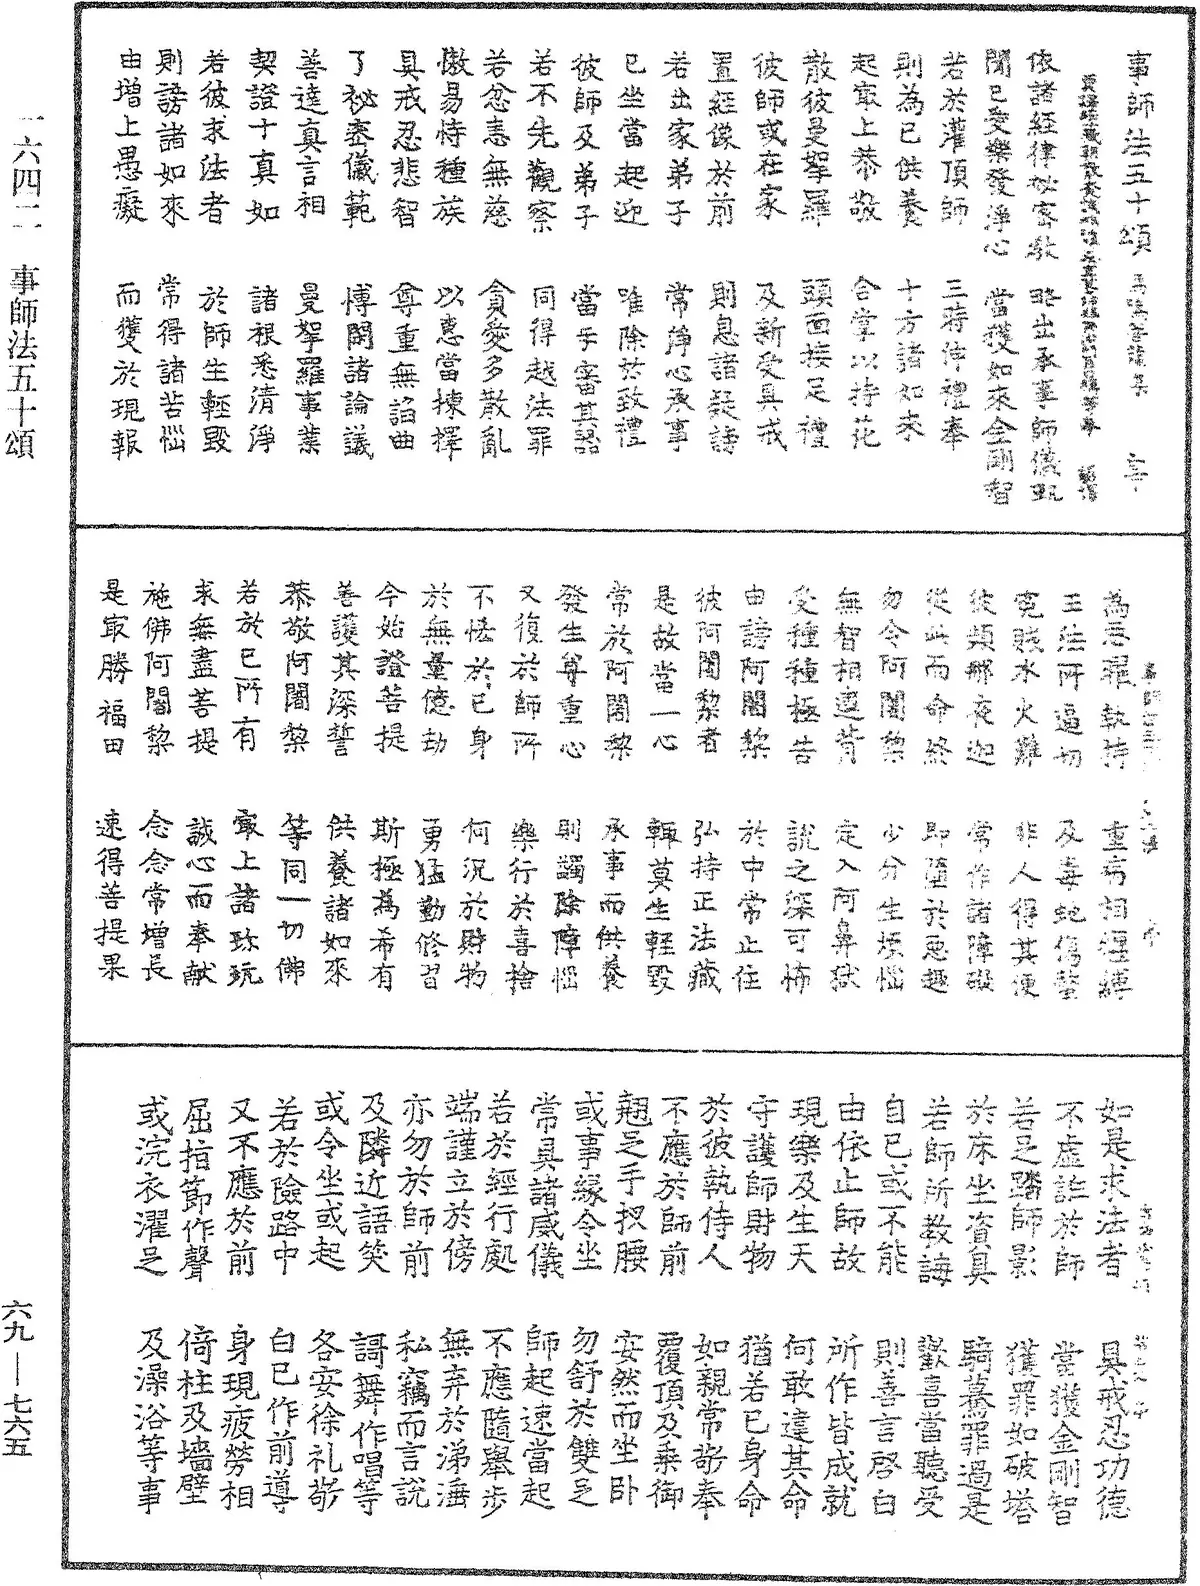 事師法五十頌 馬鳴菩薩集
依諸經律祕密教 略出承事師儀軌
聞已受樂發淨心 當獲如來金剛智
若於灌頂師 三時伸禮奉
則為已供養 十方諸如來
起寂上恭敬 合掌以持花
散彼曼拏羅 頭面接足禮
彼師或在家 及新受具戒
置經像於前 則息諸疑謗
若出家弟子 常淨心承事
已坐當起迎 唯除於致禮
彼師及弟子 當互審其器
若不先觀察 同得越法罪
若忿恚無慈 貪愛多散亂
慠易恃種族 以慧當揀擇
具戒忍悲智 尊重無諂曲
了祕密儀範 博閑諸論議
善達真言相 曼拏羅事業
契證十真如 諸根悉清淨
若彼求法者 於師生輕毀
則謗諸如來 常得諸苦惱
由增上愚癡 而獲於現報
為惡罪執持 重病相纏縛
王法所逼切 及毒蛇傷螫
冤賊水火難 非人得其便
彼頻那夜迦 常作諸障礙
從此而命終 即墮於惡趣
勿令阿闍黎 少分生煩惱
無智相違背 定入阿鼻獄
受種種極苦 說之深可怖
由謗阿闍黎 於中常止住
彼阿闍黎者 弘持正法藏
是故當一心 輒莫生輕毀
常於阿闍黎 承事而供養
發生尊重心 則蠲除障惱
又復於師所 樂行於喜捨
不恡於己身 何況於財物
於無量億劫 勇猛勤修習
今始證菩提 斯極為希有
善護其深誓 供養諸如來
恭敬阿闍黎 等同一切佛
若於己所有 寂上諸珎玩
求無盡菩提 誠心而奉獻
施佛阿闍黎 念念常增長
是寂勝福田 速得菩提果
如是求法者 具戒忍功德
不虛詐於師 當獲金剛智
若足蹈師影 獲罪如破塔
於床坐資具 騎驀罪過是
若師所教誨 歡喜當聽受
自己或不能 則善言啓白
由依止師故 所作皆成就
現樂及生天 何敢違其命
守護師財物 猶若己身命
於彼執侍人 如親常敬奉
不應於師前 覆頂及乗御
翹足手扠腰 安然而坐卧
或事緣令坐 勿舒於雙足
常具諸威儀 師起速當起
若於經行處 不應隨舉步
端謹立於傍 無弃於涕唾
亦勿於師前 私竊而言說
及隣近語笑 謌舞作唱等
或令坐或起 各安徐礼敬
若於險路中 白已作前導
又不應於前 身現疲勞相
屈指節作聲 倚柱及墻壁
或浣衣濯足 及澡浴等事
一六四二 事師法五十頌
六九—七六五